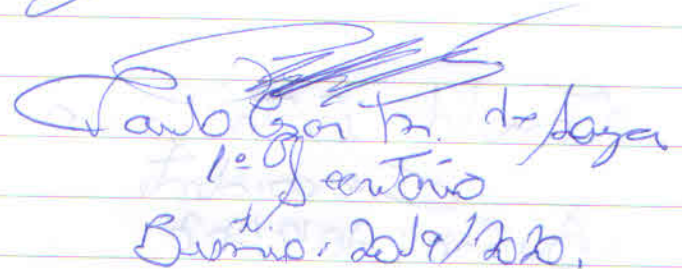 Paulo Cezar Fr. de Souza
1º Secretário
Biênio: 2019/2020.